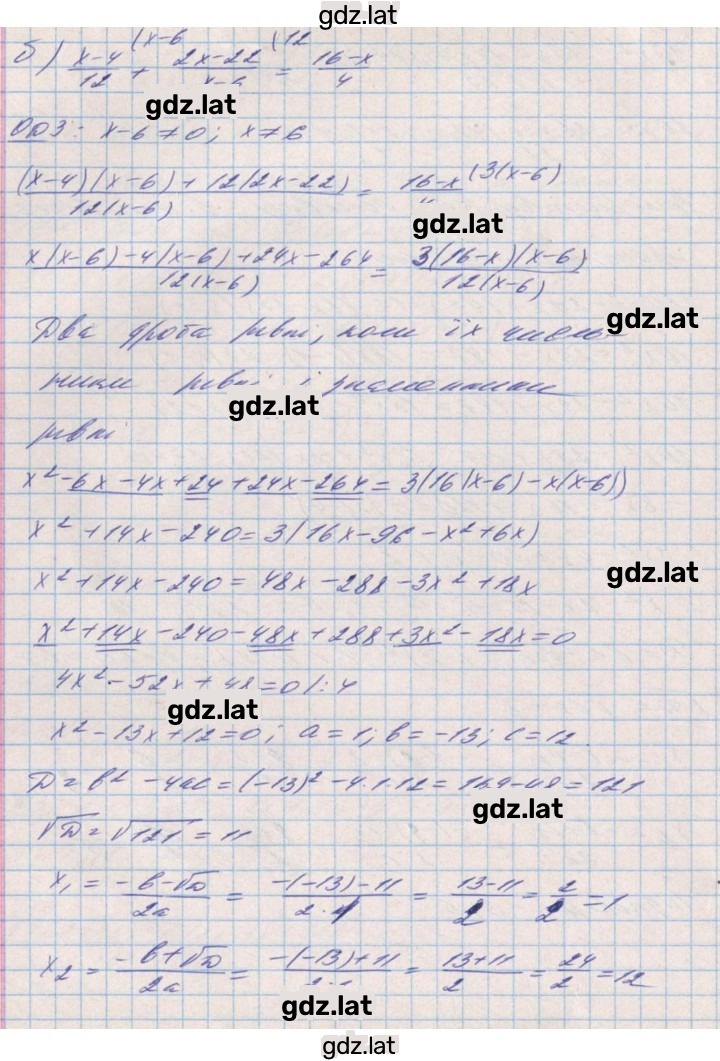 gdz.lat
б) (x-4)/12 (x-6 + (2x-22)/(x-6) (12 = (16-x)/4
gdz.lat
ОДЗ: x-6≠0; x≠6
((x-4)(x-6)+12(2x-22))/(12(x-6)) = (16-x)/4 (3(x-6)
gdz.lat
(x(x-6)-4(x-6)+24x-264)/(12(x-6)) = (3(16-x)(x-6))/(12(x-6))
gdz.lat
Два дроба рівні, коли їх чисель-
ники рівні і знаменники
gdz.lat
рівні
x²-6x-4x+24+24x-264=3(16(x-6)-x(x-6))
x²+14x-240=3(16x-96-x²+6x)
gdz.lat
x²+14x-240=48x-288-3x²+18x
x²+14x-240-48x+288+3x²-18x=0
4x²-52x+48=0/:4
gdz.lat
x²-13x+12=0; a=1; b=-13; c=12.
D=b²-4ac=(-13)²-4·1·12=169-48=121
gdz.lat
√D=√121=11
x₁=(-b-√D)/2a=(-(-13)-11)/(2·1)=(13-11)/2=2/2=1
x₂=(-b+√D)/2a=(-(-13)+11)/(2·1)=(13+11)/2=24/2=12
gdz.lat
gdz.lat